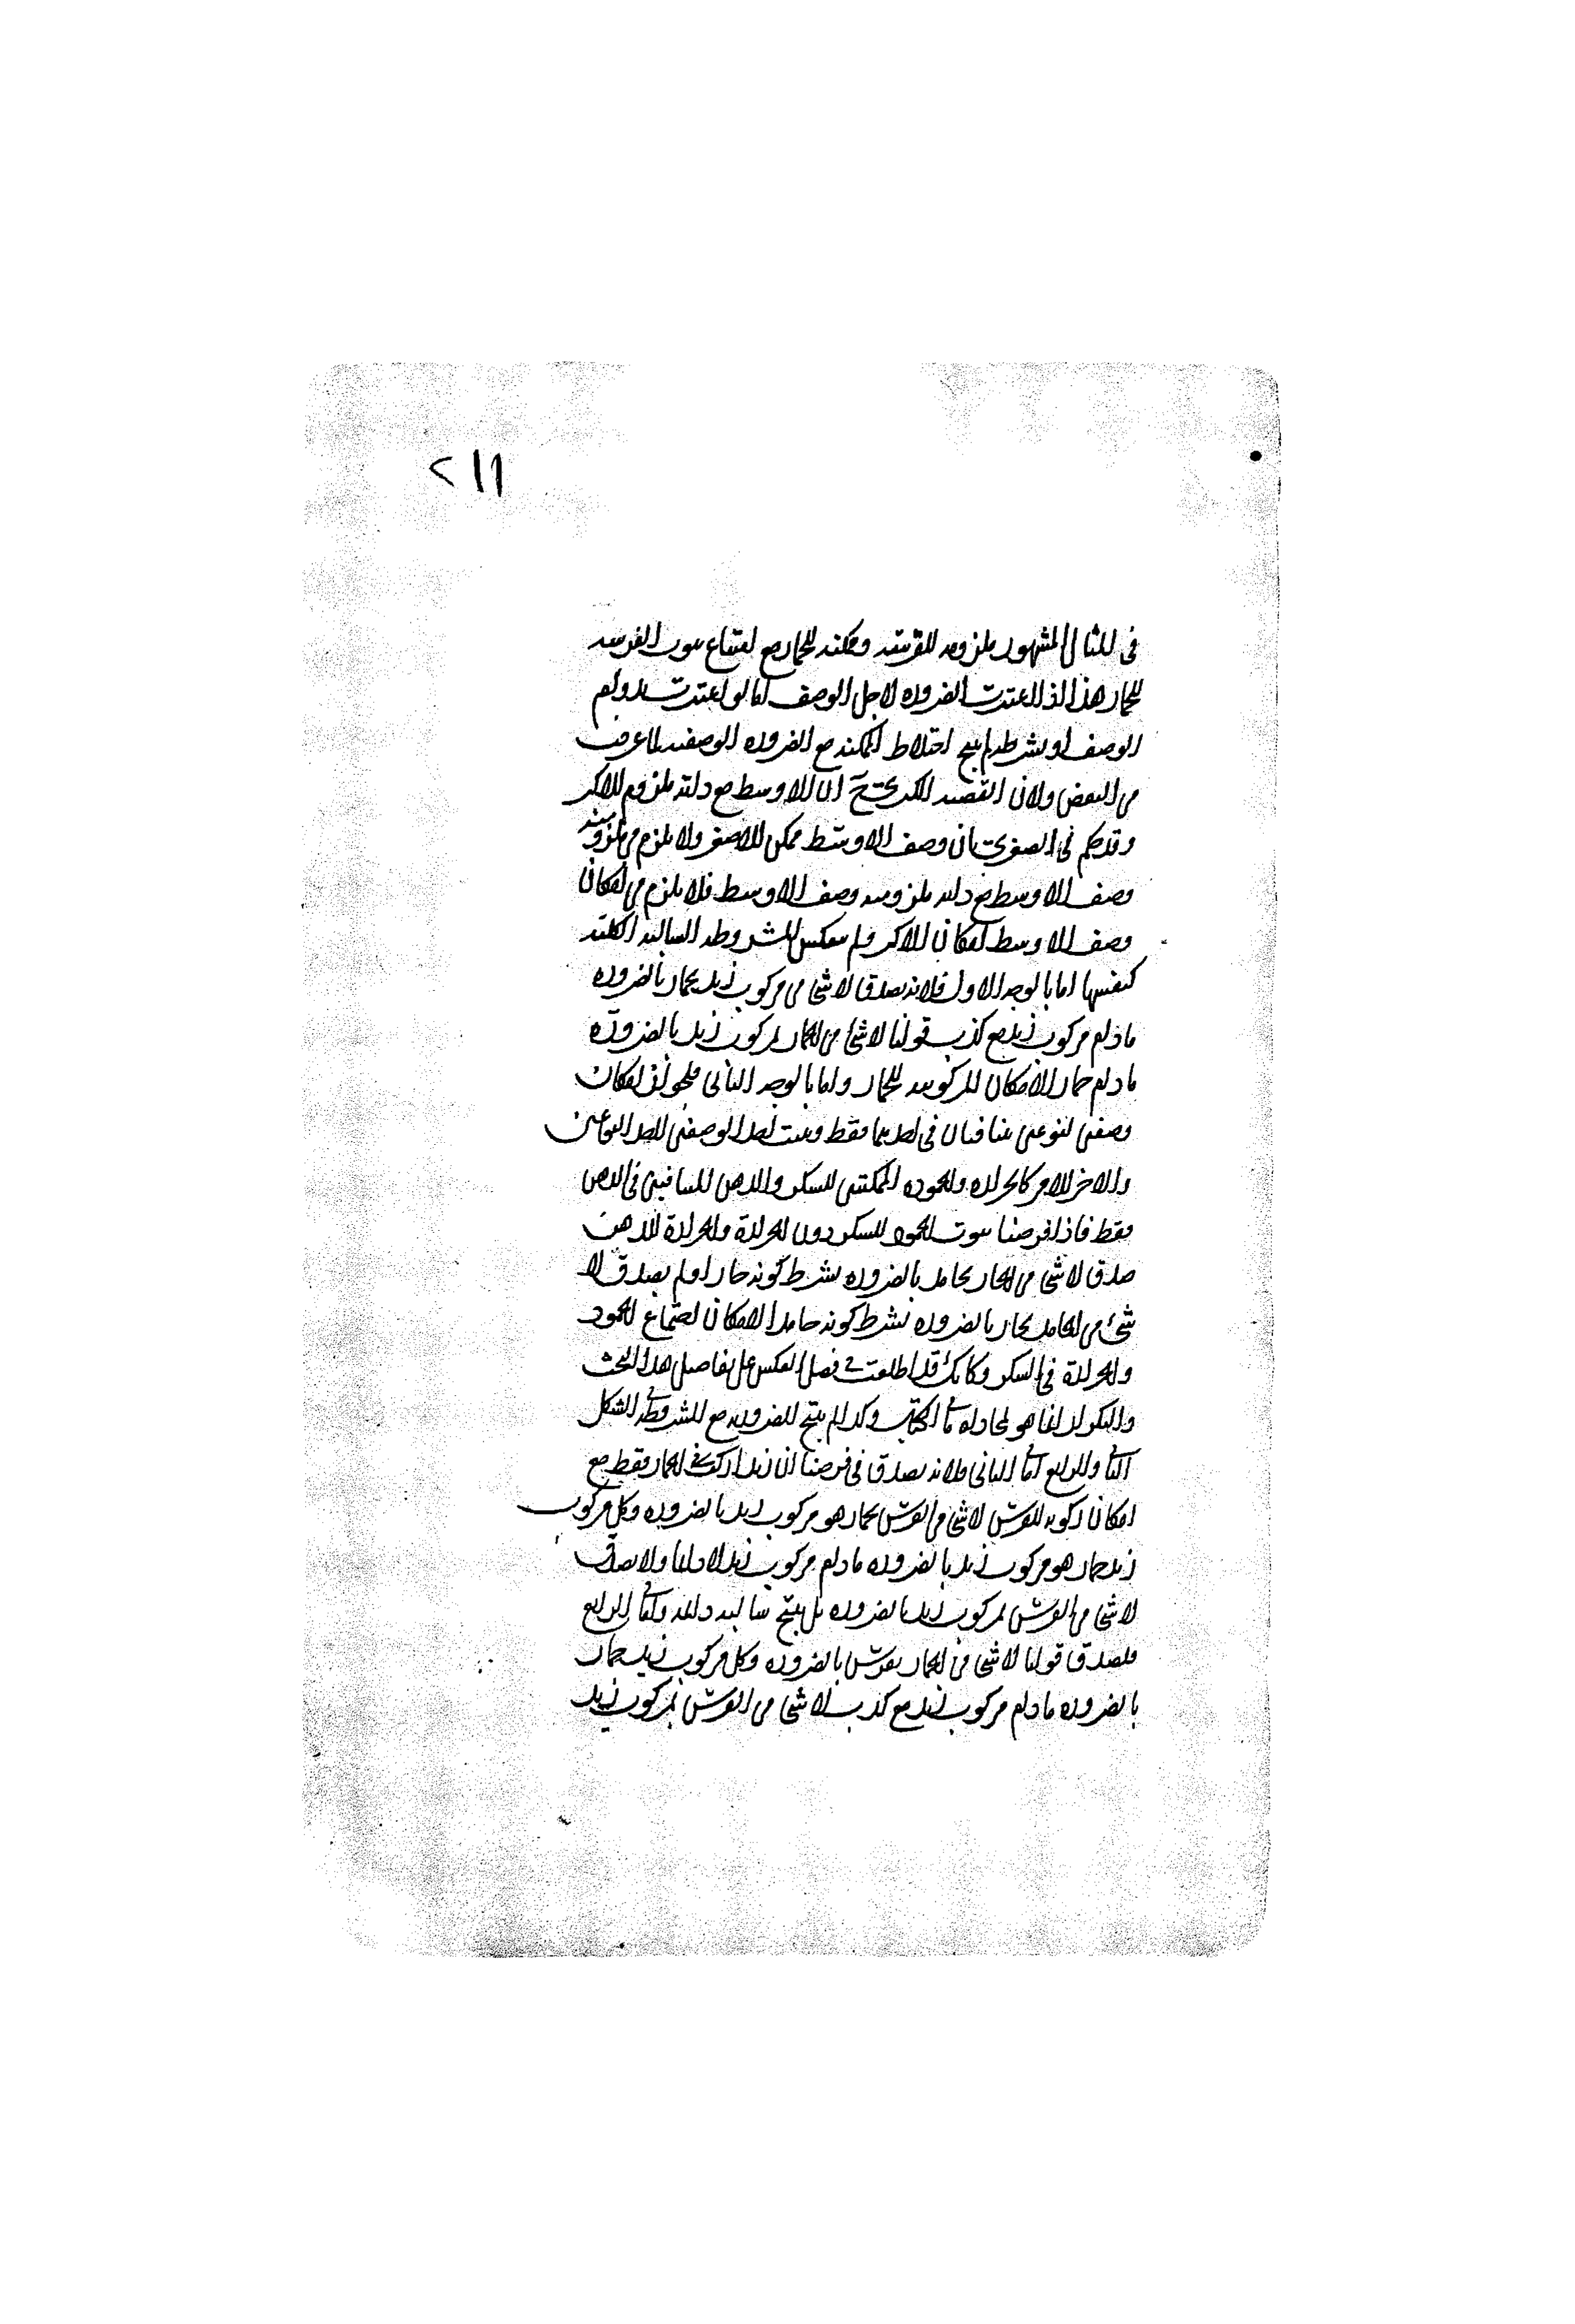 ٢١١
في المثال المشهور ملزومه للفرسيه وممكنه للحمار مع امتناع ثبوت الفرسيه
للحمار هذا اذا اعتبرت الضروره لاجل الوصف اما لو اعتبرت مادام
الوصف او بشرطه لم ينتج اختلاط الممكنه مع الضروره الوصفيه لما عرفت
من النقض ولان القضيه الكبرى ان الاوسط مع ذاته ملزوم للاكبر
وقد حكم في الصغرى بان وصف الاوسط ممكن للاصغر ولا يلزم من ملزوميه
وصف الاوسط مع ذاته ملزوميه وصف الاوسط فلا يلزم من امكان
وصف الاوسط امكان الاكبر ولم ينعكس المشروطه السالبه الكليه
كنفسها اما بالوجه الاول فلانه يصدق لا شئ من مركوب زيد بحمار بالضروره
مادام مركوب زيد مع كذب قولنا لا شئ من الحمار بمركوب زيد بالضروره
مادام حمارا لامكان المركوبيه للحمار واما بالوجه الثاني فلجواز امكان
وصفين لنوعين متنافيان في احدهما فقط وثبت احد الوصفين لاحد النوعين
والاخر للاخر كالحراره والجموده الممكنتين للسكر والدهن المتنافيتين في الدهن
فقط فاذا فرضنا ثبوت الجمود للسكر دون الحرارة والحرارة للدهن
صدق لا شئ من الحار بجامد بالضروره بشرط كونه حارا ولم يصدق لا
شئ من الجامد بحار بالضروره بشرط كونه جامدا لامكان اجتماع الجمود
والحرارة في السكر وكانك قد اطلعت في فصل العكس على تفاصيل هذا البحث
والتكرار انما هو لمحاذاة ما في الكتاب وكذا لم ينتج الضروريه مع المشروطه في الشكل
الثاني والرابع اما في الثاني فلانه يصدق في فرضنا ان زيدا ركب الحمار فقط مع
امكان ركوبه الفرس لا شئ من الفرس بحمار هو مركوب زيد بالضروره وكل مركوب
زيد حمار هو مركوب زيد بالضروره مادام مركوب زيد لا دائما ولا يصدق
لا شئ من الفرس بمركوب زيد بالضروره بل ينتج سالبه دائمه واما في الرابع
فلصدق قولنا لا شئ من الحمار بفرس بالضروره وكل مركوب زيد حمار
بالضروره مادام مركوب زيد مع كذب لا شئ من الفرس بمركوب زيد